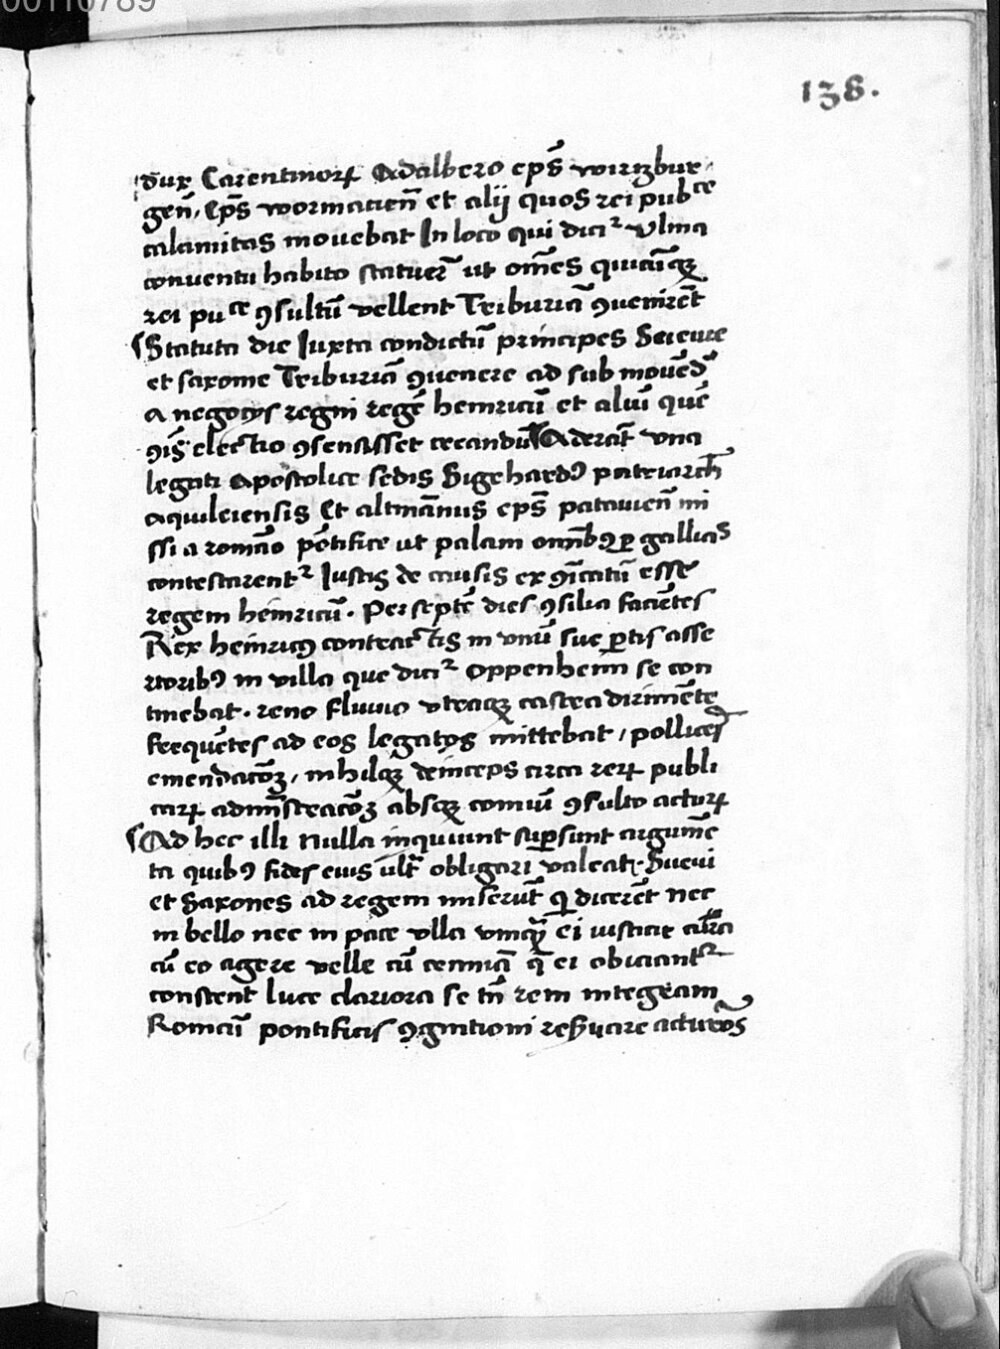 00110789
138.
dux Carentinorꝝ Adalbero ep̄s wirtzbur-
gen̄, Ep̄s wormacien̄ et alij quos rei pubᶜᵉ
calamitas mouebat In loco qui diciᵗ Vlma
conuentu habito statuer̄ ut om̄es quicūqꝫ
rei puᶜᵉ ꝯsultū vellent Triburiā ꝯuenirēt
Statuta die Iuxta condictū principes Seieuie
et saxonie Triburiā ꝯuenere ad sub mouēdū
a negocijs regni regē heinricū et aliū quē
ꝯīs electio ꝯsensisset creandū Aderāt vna
legati Apostolice sedis Sigehardꝰ patriarch
aquileiensis Et altmānus ep̄s patauien̄ mi
ssi a romāo pōtifice ut palam omībꝰ ꝑ gallias
contestarentᵗ Iustis de causis ex ꝯīcatū esse
regem heinricū. Per septē dies ꝯsilia faciētes
Rex heinricꝰ contractis in vnū sue ꝑtis asse
rtoribꝰ in villa que diciᵗ Oppenheim se con
tinebat. reno fluuio vtraqꝫ castra dirimēte
frequētes ad eos legatos mittebat, pollicēs
emendacōꝫ, nihilqꝫ deinceps circa rerꝝ publi
carꝝ admīstracōꝫ absqꝫ comiū ꝯsulto acturꝝ
Ad hec illi Nulla inquiunt suꝑsunt argumē
ta quibꝰ fides eius ult̄ obligari valeat. Sueui
et Saxones ad regem miserūt qui dicerēt nec
in bello nec in pace vlla vmqꝫ ei iusticie cura
cū eo agere velle cū crimīa q̄ ei obiciantᵗ
constent luce clariora se tn̄ rem integram
Romāi pontificis ꝯgnitioni reseruare acturos